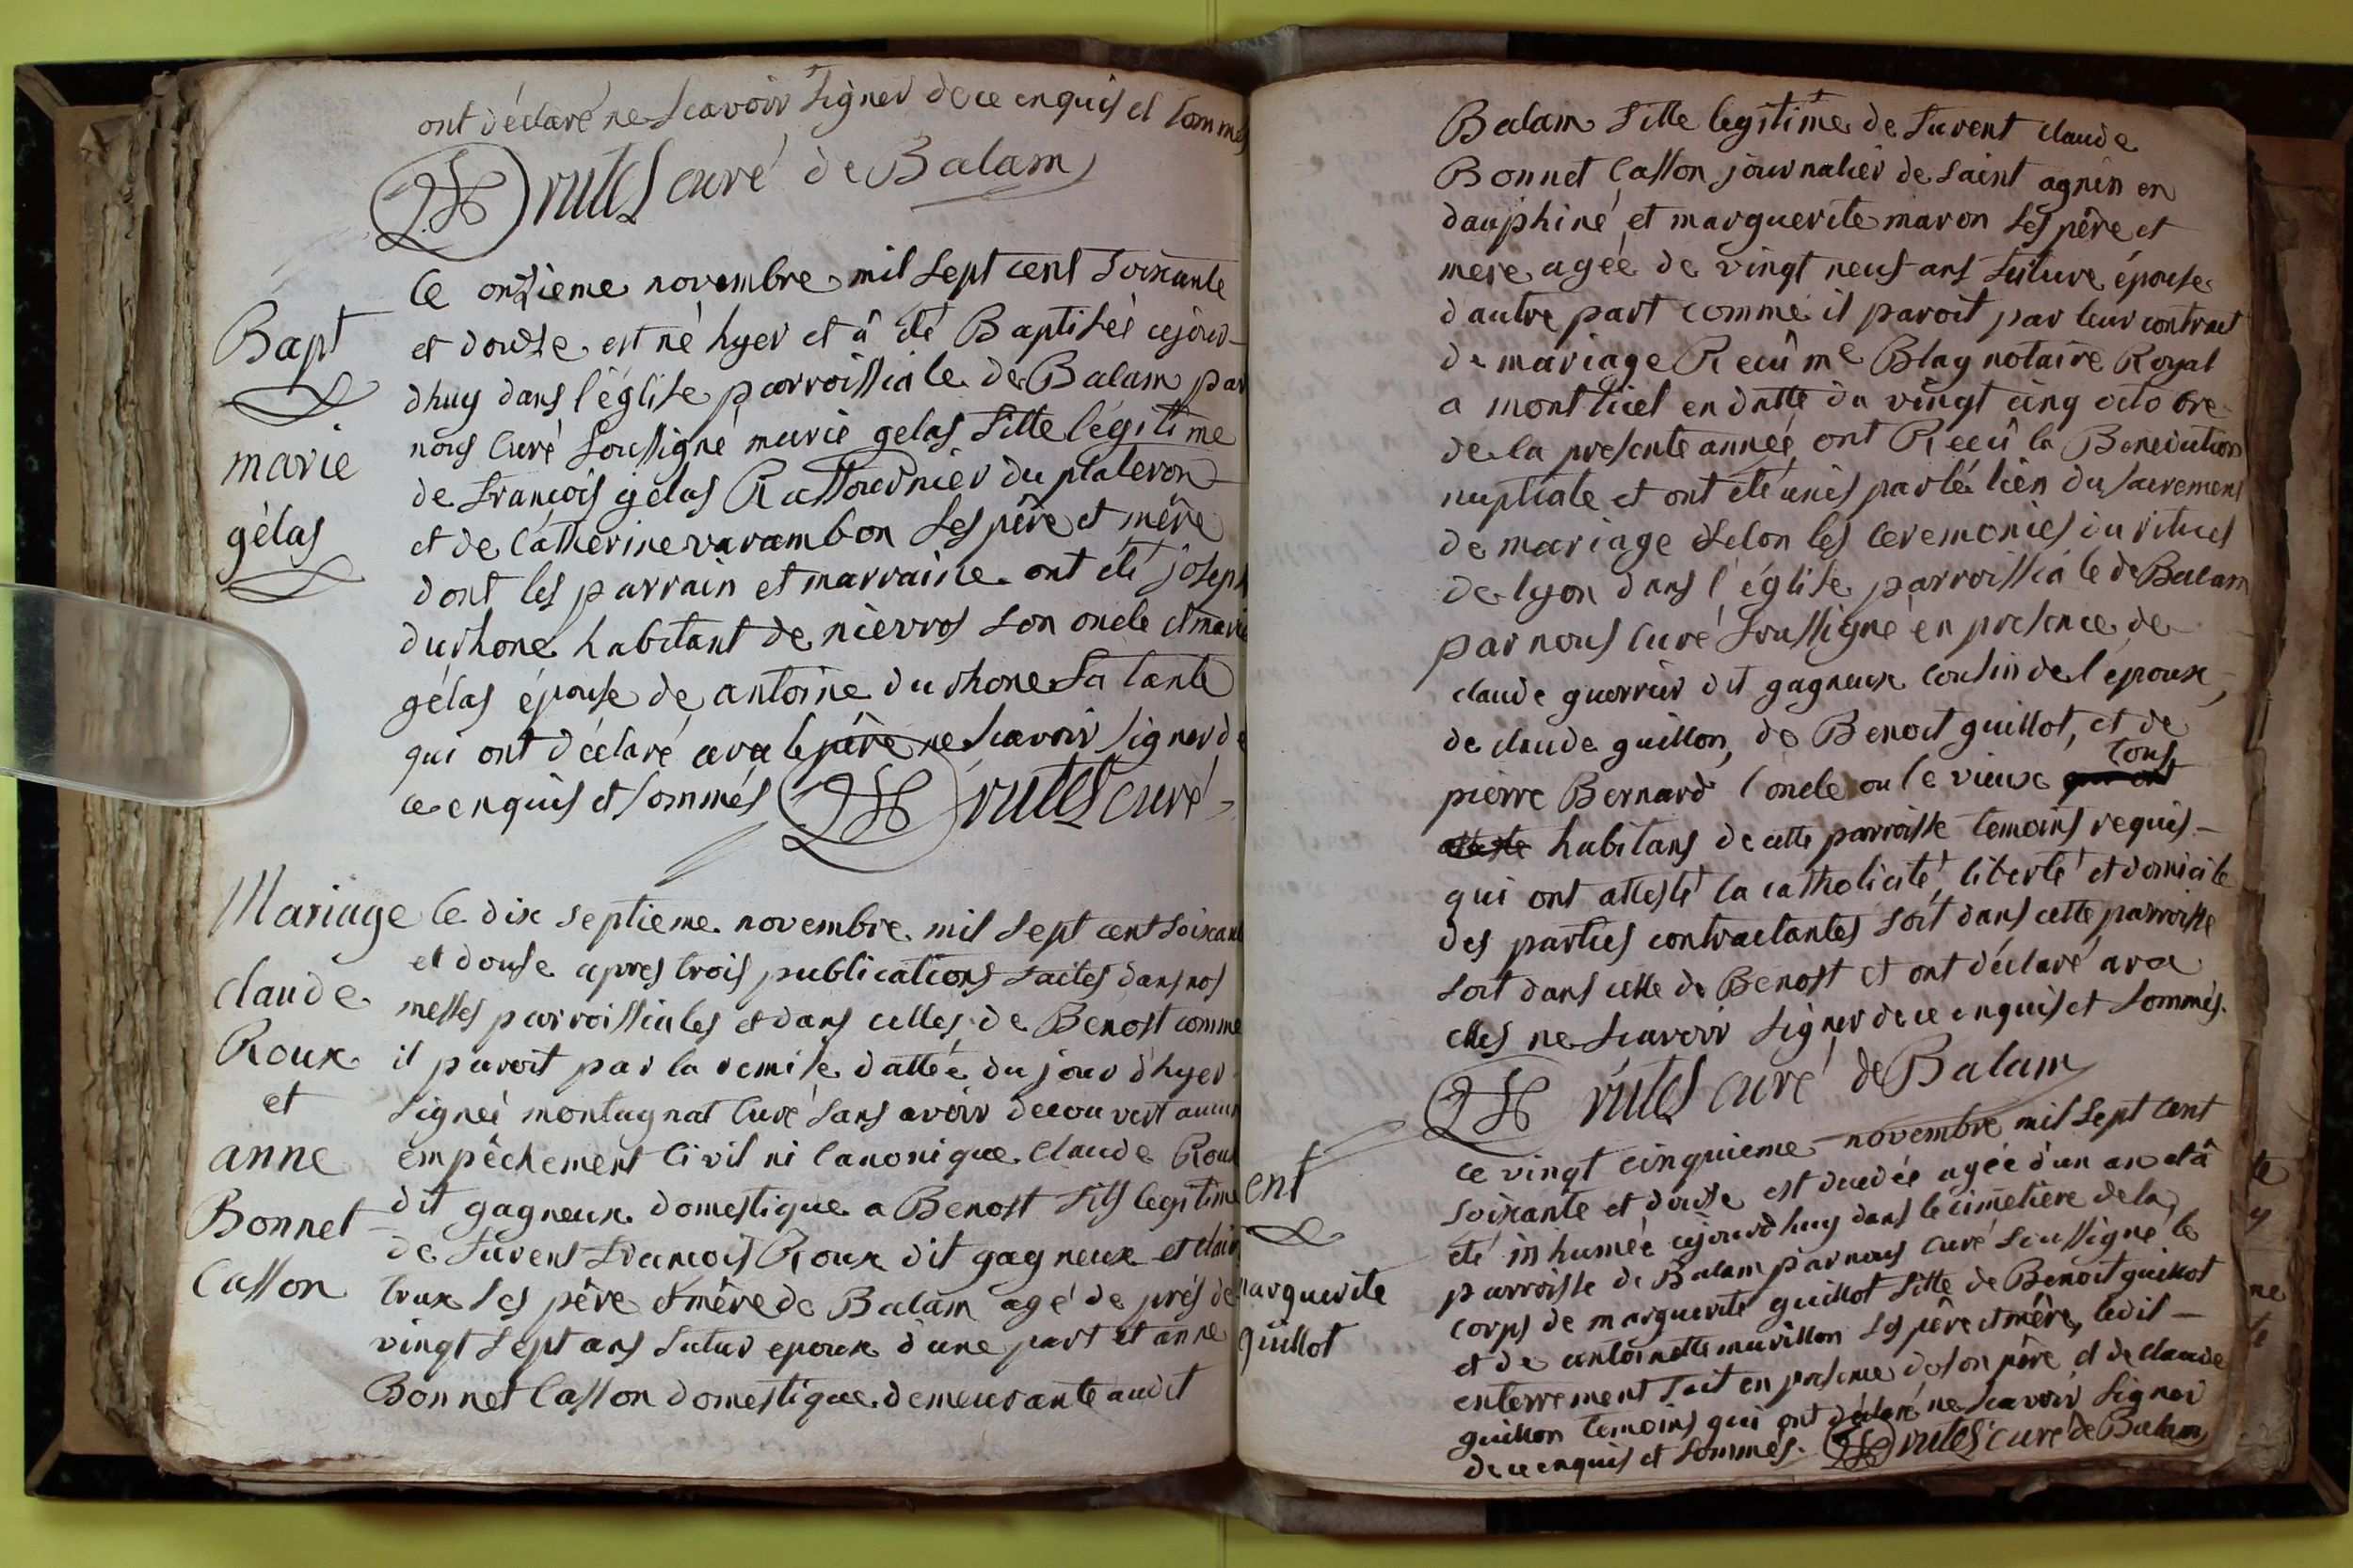 ont déclaré ne scavoir signer de ce enquis et sommés
Brutel curé de Balam
Bapt
marie
gélas
le onzieme novembre mil sept cent soixante
et douze est né hyer et â été Baptisée cejour-
dhuy dans l'église parroissiale de Balam par
nous Curé soussigné marie gelas fille légitime
de françois gelas du plateron
et de Catherine varambon ses pêre et mêre
dont les parrain et marraine ont été joseph
durhone habitant de nievros son oncle et marie
gélas épouse de antoine durhone sa tante
qui ont déclaré avec le père ne scavoir signer de
ce enquis et sommés Brutel curé
Mariage
claude
Roux
et
anne
Bonnet
Casson
le dix septieme novembre mil sept cent soixante
et douse apres trois publications faites dans nos
messes parroissiales et dans celles de Benost comme
il paroit par la remise dattée du jour d'hyer
signeé montagnat Curé sans avoir decouvert aucun
empêchement Civil ni Canonique Claude Roux
dit gagneux domestique a Benost fils legitime
de fuvent francois Roux dit gagneux et
trux ses pêre et mêre de Balam agé de prés de
vingt sept ans futur epoux d'une part et anne
Bonnet Casson domestique demeurante audit
Balam fille legitime de fuvent claude
Bonnet Casson journalier de saint agnin en
dauphiné et marguerite maron ses pêre et
mere ageé de vingt neuf ans future épouse
d'autre part comme il paroit par leur contract
de mariage Recû me Blag notaire Royal
a montluel en datte du vingt cinq octobre
de la presente année ont Recû la Benediction
nuptiale et ont été unis par le lien du sacrement
de mariage selon les ceremonies du rituel
de lyon dans l'église parroissiale de Balam
par nous Curé soussigné en presence de
claude guerrier dit gagneux cousin de l'époux,
de claude guillon, de Benoit guillot, et de
pierre Bernard l'oncle ou le vieux tous
habitans de cette parroisse temoins requis
qui ont attesté la catholicité, liberté et domicile
des parties contractantes soit dans cette parroisse
soit dans celle de Benost et ont déclaré avec
elles ne scavoir signer de ce enquis et sommés.
Brutel curé de Balam
ent
marguerite
guillot
le vingt cinquieme novembre mil sept cent
soixante et douze est decedée ageé d'un an et â
été inhumée cejourdhuy dans le cimetiere de la
parroisse de Balam par nous Curé soussigné le
corps de marguerite guillot fille de Benoit guillot
et de antoinette marillon ses pêre et mêre, ledit
enterrement fait en presence de son père et de claude
guillon temoins qui ont déclaré ne scavoir signer
de ce enquis et sommés. Brutel curé de Balam